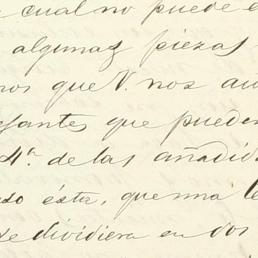 cual no puede
algunas piezas
que V. nos
que pueden
4ª. de las añadid
do ésta, que una te
se dividiera en dos